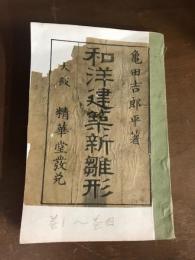 亀田吉郎平著
和洋建築新雛形
大阪 精華堂發兌